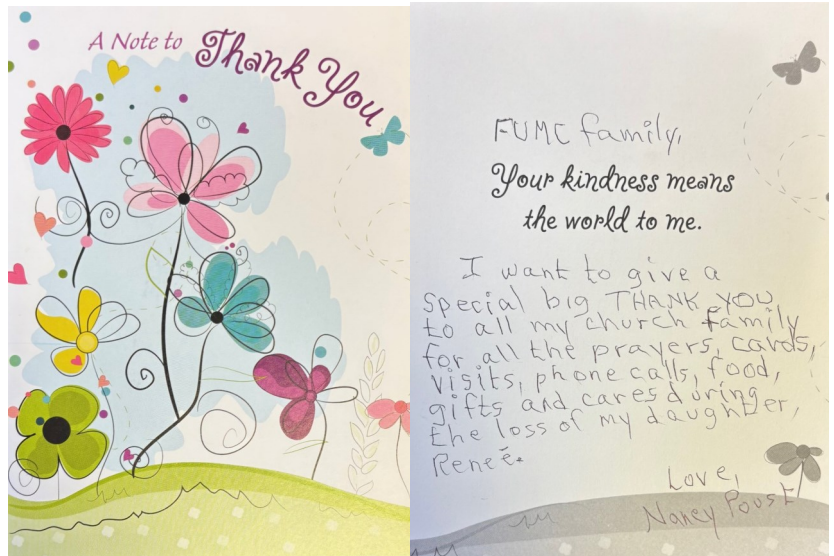 A Note to Thank You
FUMC family,
Your kindness means
the world to me.
I want to give a
special big THANK YOU
to all my church family
for all the prayers, cards,
visits, phone calls, food,
gifts and cares during
the loss of my daughter,
Reneé.
Love,
Nancy Poust